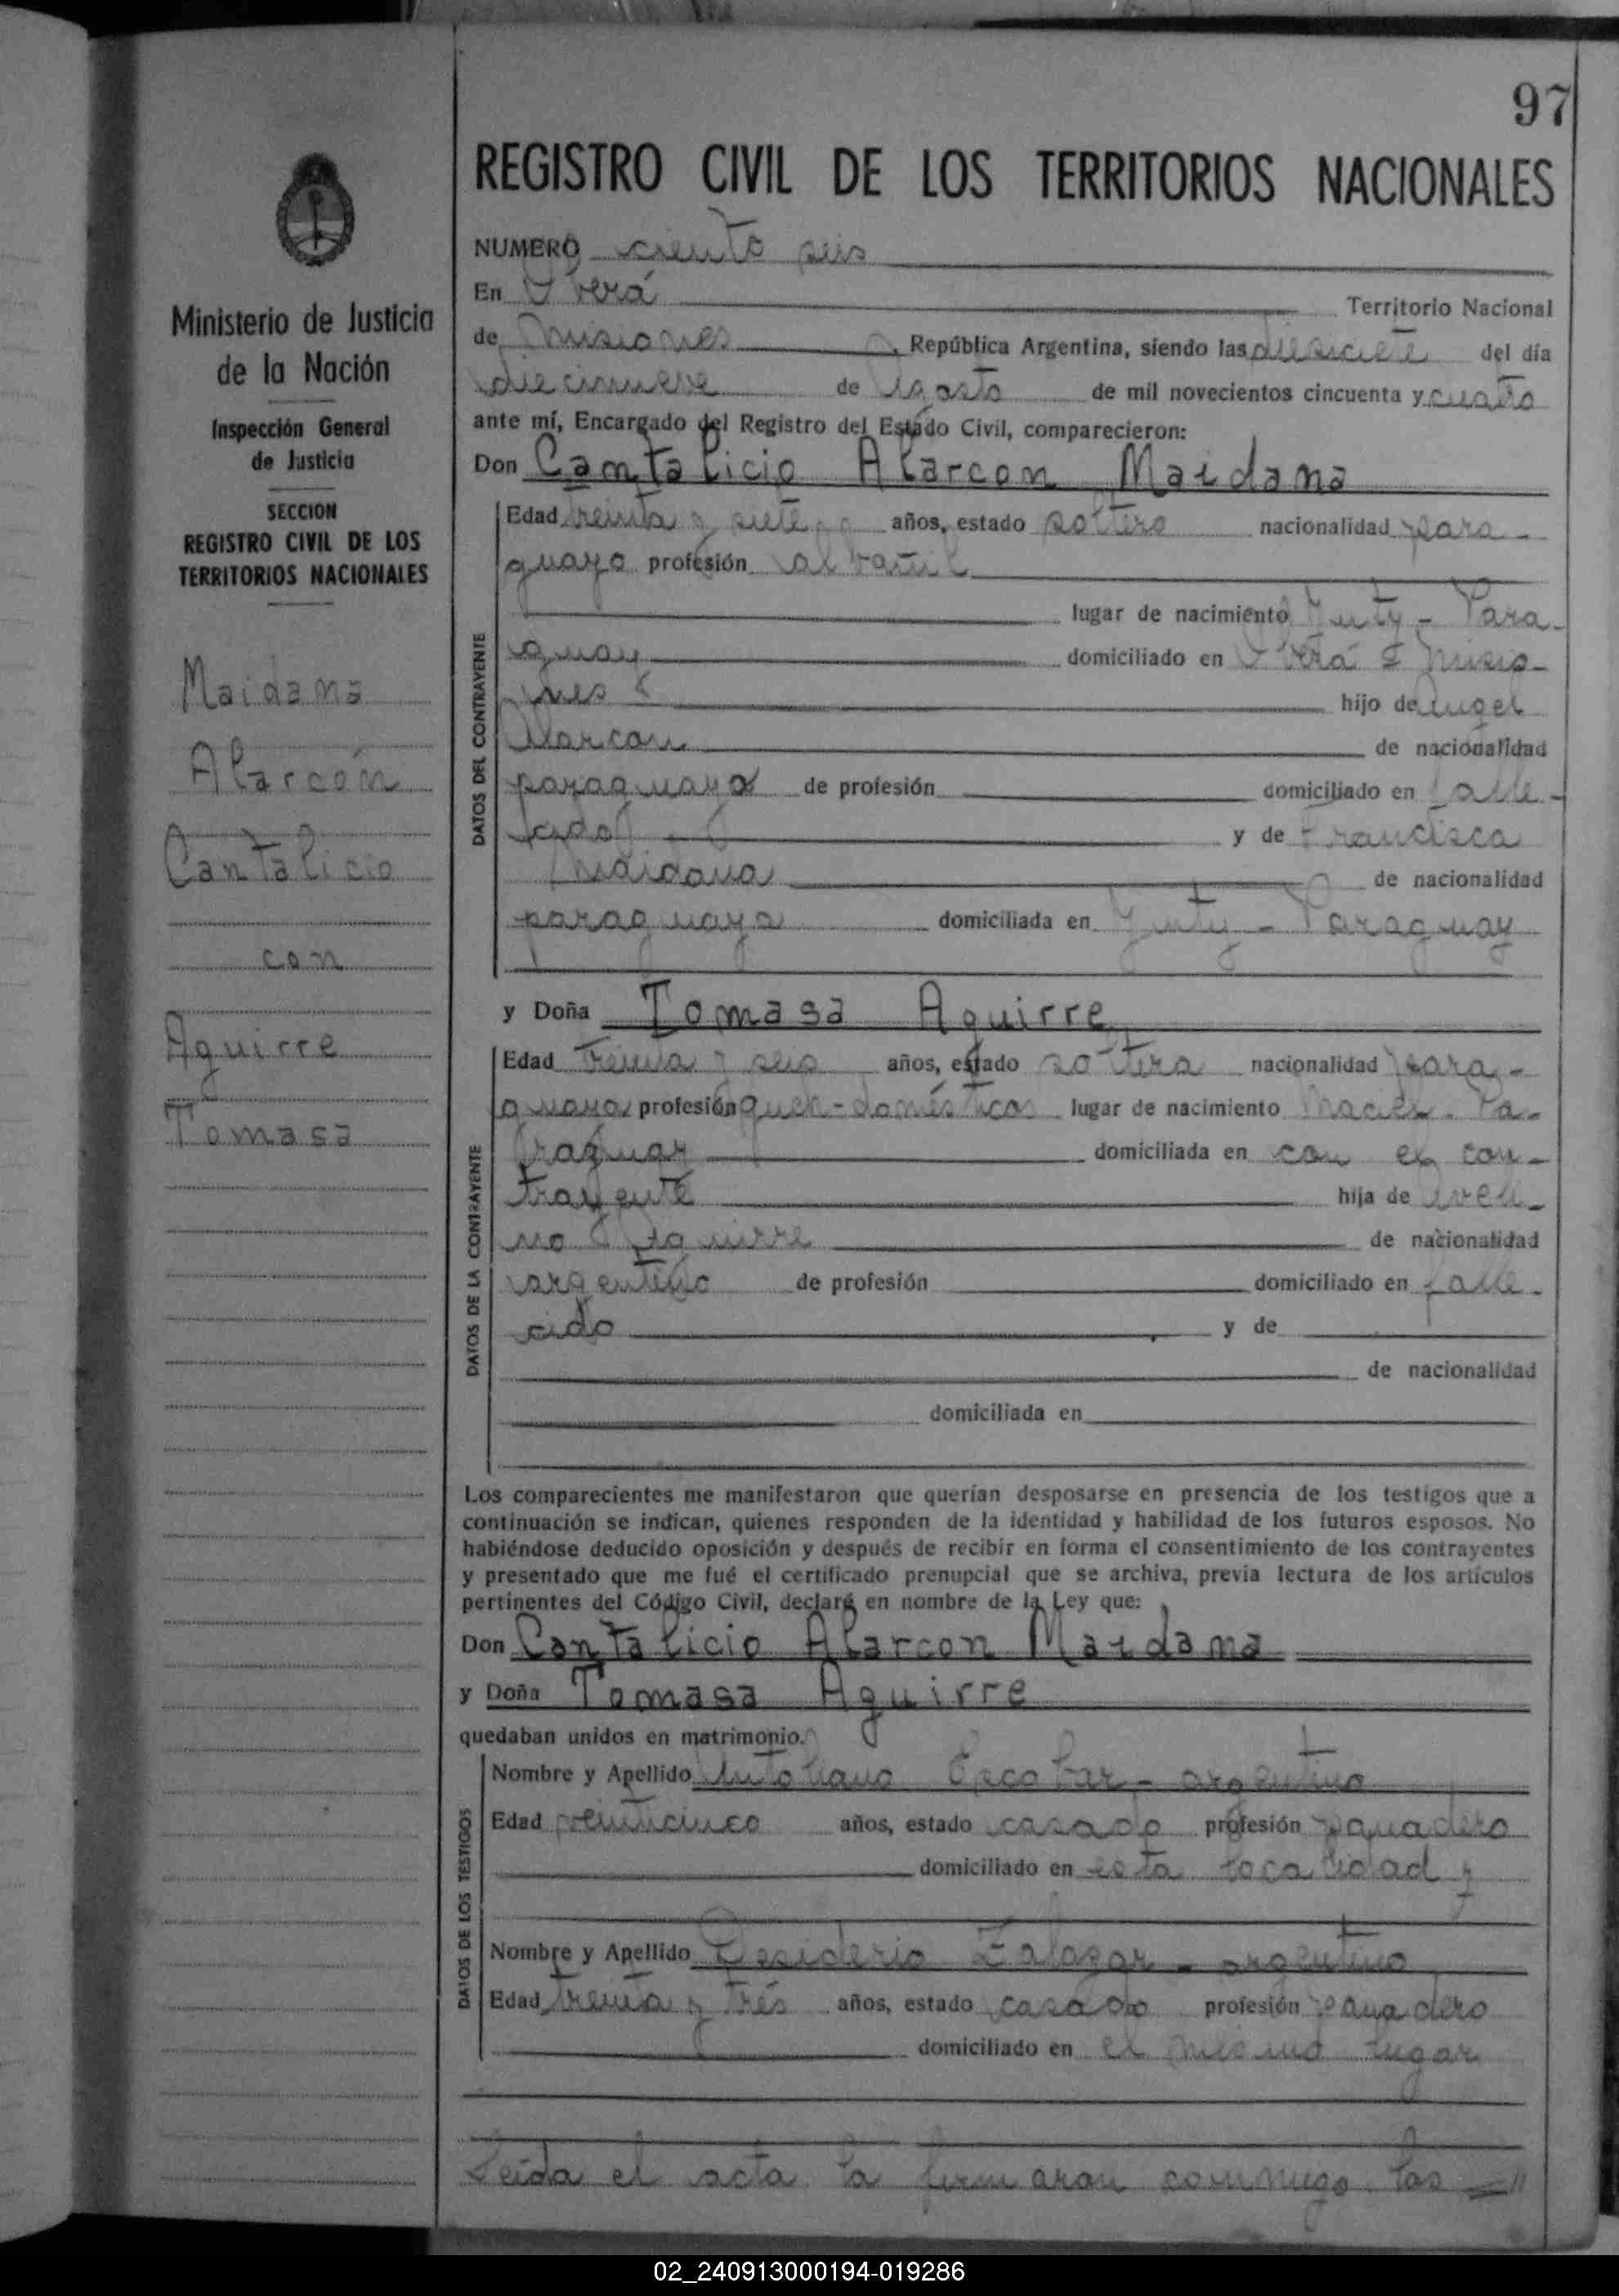 97
REGISTRO CIVIL DE LOS TERRITORIOS NACIONALES
Ministerio de Justicia
de la Nación
Inspección General
de Justicia
SECCION
REGISTRO CIVIL DE LOS
TERRITORIOS NACIONALES
Maidana
Alarcón
Cantalicio
con
Aguirre
Tomasa
NUMERO ciento seis
En Oberá Territorio Nacional
de Misiones República Argentina, siendo las diecisiete del día
diecinueve de Agosto de mil novecientos cincuenta y cuatro
ante mí, Encargado del Registro del Estado Civil, comparecieron:
Don Cantalicio Alarcon Maidana
DATOS DEL CONTRAYENTE
Edad treinta y siete años, estado soltero nacionalidad para-
guayo profesión albañil
lugar de nacimiento Yuty - Para-
guay domiciliado en Oberá Misio-
nes hijo de Angel
Alarcon de nacionalidad
paraguaya de profesión domiciliado en falle-
cido y de Francisca
Maidana de nacionalidad
paraguaya domiciliada en Yuty - Paraguay
y Doña Tomasa Aguirre
DATOS DE LA CONTRAYENTE
Edad treinta y seis años, estado soltera nacionalidad para-
guaya profesión queh-domésticos lugar de nacimiento Maciel - Pa-
raguay domiciliada en con el con-
trayente hija de
no Aguirre de nacionalidad
argentino de profesión domiciliado en falle-
cido y de
de nacionalidad
domiciliada en
Los comparecientes me manifestaron que querían desposarse en presencia de los testigos que a
continuación se indican, quienes responden de la identidad y habilidad de los futuros esposos. No
habiéndose deducido oposición y después de recibir en forma el consentimiento de los contrayentes
y presentado que me fué el certificado prenupcial que se archiva, previa lectura de los artículos
pertinentes del Código Civil, declaré en nombre de la Ley que:
Don Cantalicio Alarcon Maidana
y Doña Tomasa Aguirre
quedaban unidos en matrimonio.
DATOS DE LOS TESTIGOS
Nombre y Apellido Escobar - argentino
Edad veinticinco años, estado casado profesión panadero
domiciliado en esta localidad y
Nombre y Apellido Desiderio Zalazar - argentino
Edad treinta y trés años, estado casado profesión panadero
domiciliado en el mismo lugar
Leída el acta la firmaran conmigo los
02_240913000194-019286